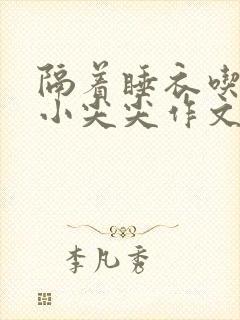 隔着睡衣喫
小尖尖作文
李凡秀